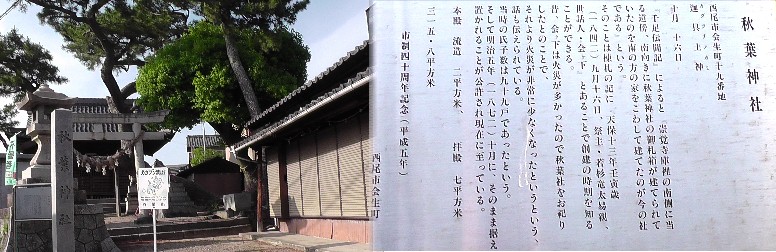 秋葉神社
秋葉神社
西尾市会生町十九番地
迦具土神
十月 十六日
「千足伝聞記」によると 崇覚寺庫裡の南側に当
る道傍に南向きに秋葉神社の御札箱が建てられて
いたのを南の方の家をこわして建てたのが今の社
である、という。
そのことは棟札の記に、天保十三年壬寅歳
(一八四二)九月十六日、祭主・若杉竜太易親、
世話人・会ノ下 とあることで創建の時期を知る
ことができる。
昔、会ノ下は火災が多かったので秋葉社をお祀り
したとのことで、
それより火災が非常に少なくなったというという、
話も伝えられている。
当時の氏子数は五十九戸であったという。
そして明治五年(一八七二)十月に、そのまま据え
置かれることが公許され現在に至っている。
本殿 流造 二平方米、 拝殿 七平方米
三一五・八平方米
市制四十周年記念(平成五年)
西尾市会生町